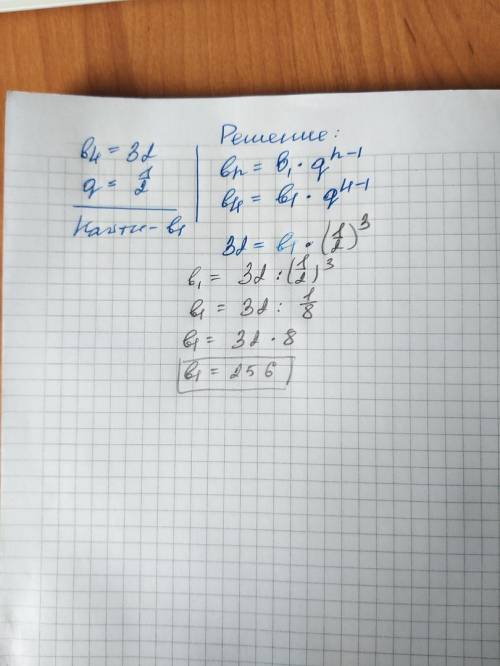 b₄ = 32
q = 1/2
Найти - b₁
Решение:
bₙ = b₁ · qⁿ⁻¹
b₄ = b₁ · q⁴⁻¹
32 = b₁ · (1/2)³
b₁ = 32 : (1/2)³
b₁ = 32 : 1/8
b₁ = 32 · 8
b₁ = 256